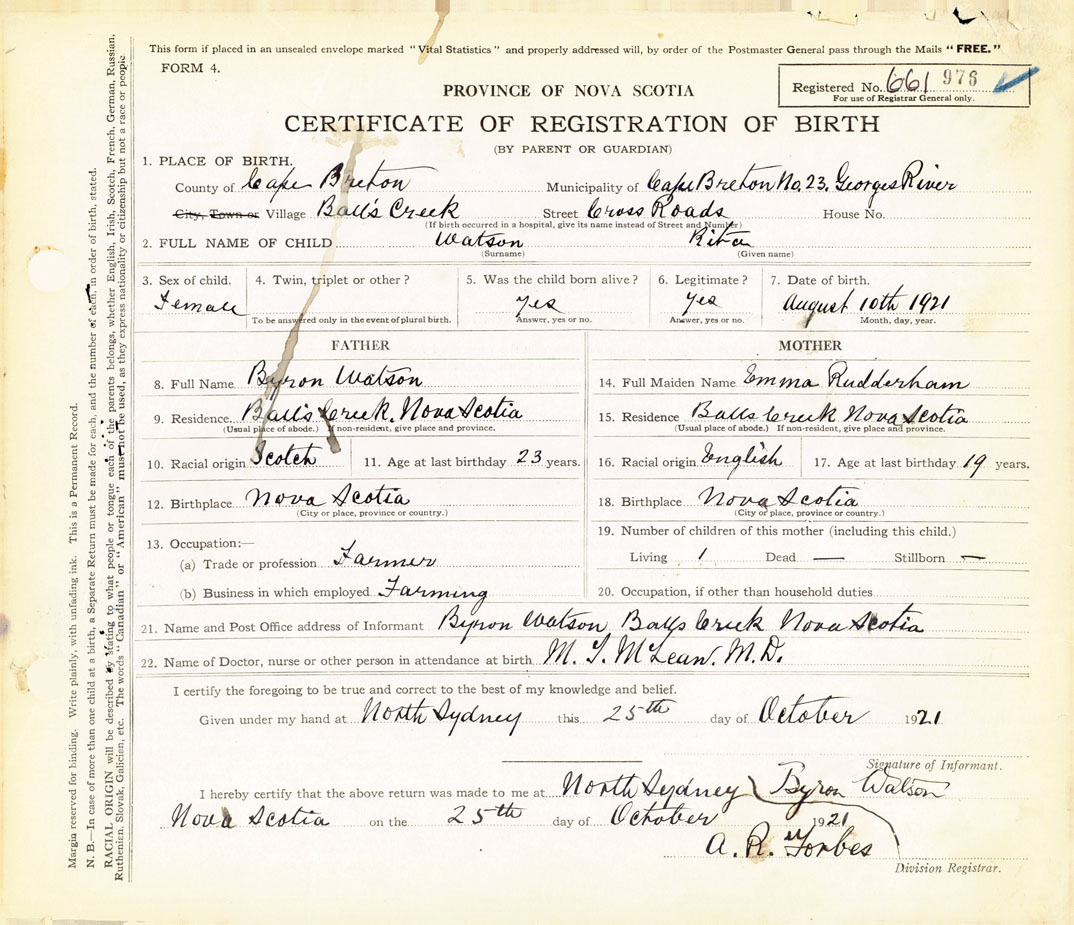 This form if placed in an unsealed envelope marked "Vital Statistics" and properly addressed will, by order of the Postmaster General pass through the Mails "FREE."
FORM 4.
Registered No. 661 976
For use of Registrar General only.
PROVINCE OF NOVA SCOTIA
CERTIFICATE OF REGISTRATION OF BIRTH
(BY PARENT OR GUARDIAN)
1. PLACE OF BIRTH.
County of Cape Breton Municipality of Cape Breton No. 23, Georges River
City, Town or Village Ball's Creek Street Cross Roads House No.
(If birth occurred in a hospital, give its name instead of Street and Number)
2. FULL NAME OF CHILD Watson Rita
(Surname) (Given name)
3. Sex of child. 4. Twin, triplet or other? 5. Was the child born alive? 6. Legitimate? 7. Date of birth.
Female yes yes August 10th 1921
To be answered only in the event of plural birth. Answer, yes or no. Answer, yes or no. Month, day, year.
FATHER
8. Full Name Byron Watson
9. Residence Ball's Creek, Nova Scotia
(Usual place of abode.) If non-resident, give place and province.
10. Racial origin Scotch 11. Age at last birthday 23 years.
12. Birthplace Nova Scotia
(City or place, province or country.)
13. Occupation:—
(a) Trade or profession Farmer
(b) Business in which employed Farming
MOTHER
14. Full Maiden Name Emma Rudderham
15. Residence Balls Creek Nova Scotia
(Usual place of abode.) If non-resident, give place and province.
16. Racial origin English 17. Age at last birthday 19 years.
18. Birthplace Nova Scotia
(City or place, province or country.)
19. Number of children of this mother (including this child.)
Living 1 Dead — Stillborn —
20. Occupation, if other than household duties
21. Name and Post Office address of Informant Byron Watson Balls Creek Nova Scotia
22. Name of Doctor, nurse or other person in attendance at birth M. T. McLean. M.D.
I certify the foregoing to be true and correct to the best of my knowledge and belief.
Given under my hand at North Sydney this 25th day of October 1921
Signature of Informant.
I hereby certify that the above return was made to me at North Sydney Byron Watson
Nova Scotia on the 25th day of October 1921
A. R. Forbes
Division Registrar.
Margin reserved for binding. Write plainly, with unfading ink. This is a Permanent Record.
N. B.—In case of more than one child at a birth, a Separate Return must be made for each, and the number of each, in order of birth, stated.
RACIAL ORIGIN will be described by stating to what people or tongue each of the parents belongs, whether English, Irish, Scotch, French, German, Russian,
Ruthenian, Slovak, Galician, etc. The words "Canadian" or "American" must not be used, as they express nationality or citizenship but not a race or people